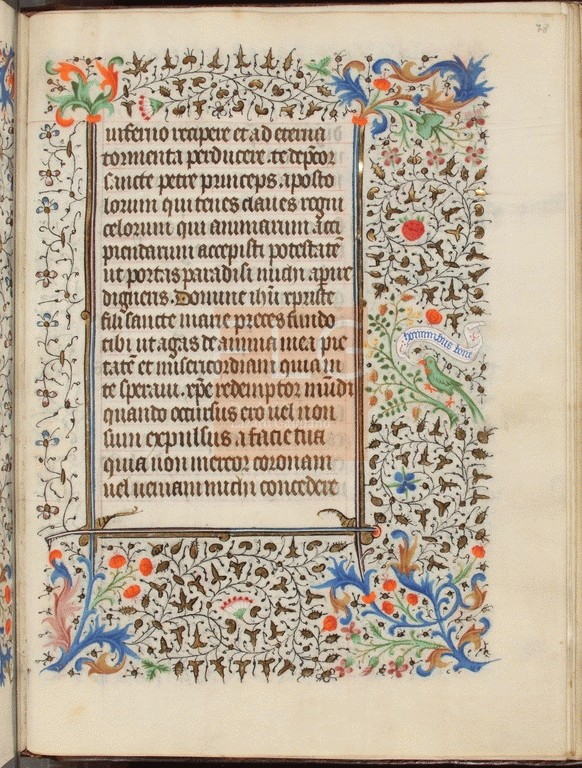 78
inferno recipere et ad eterna
tormenta perducere. te dep̄cor
sancte petre princeps aposto
lorum qui tenes claues regni
celorum qui animarum acci
piendarum accepisti potestatē
ut portas paradisi michi aperire
digneris. Domine ihū xpriste
fili sancte marie preces fundo
tibi ut agas de anima mea pie
tatē et misericordiam quia in
te speraui. xp̄e redemptor mūdi
quando occursus ero uel non
sum expulsus a facie tua
quia non mereor coronam
uel ueniam michi concedere
hominibus bone